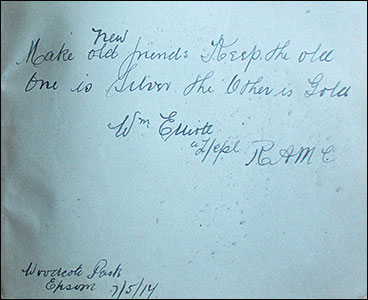 new
Make old friends Keep the old
One is Silver the Other is Gold
Wm Elliott
RAMC
Woodcote Park
Epsom 7/5/17